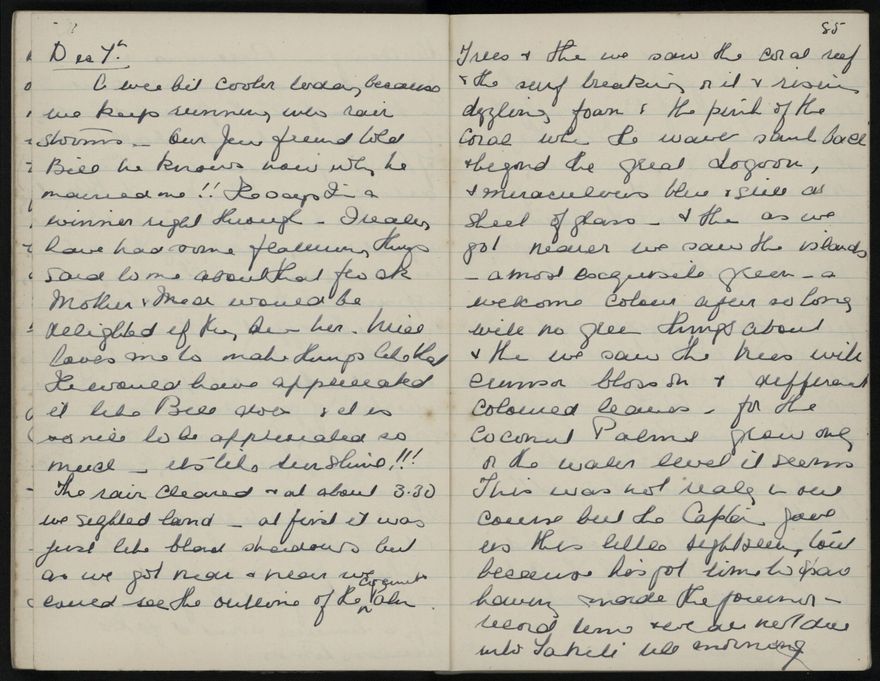 Dec 7th.
A wee bit cooler today because
we keep running into rain
storms – Our Jew friend told
Bill he knows now why he
married me!! He says I'm a
winner right through – I really
have had some flattering things
said to me about that frock
Mother & Mear would be
delighted if they saw her.
loves me to make things like that
He would have appreciated
it like Bill does & it is
so nice to be appreciated so
much – it's like sunshine!!!
The rain cleared & at about 3.30
we sighted land – at first it was
just like bland shadows but
as we got near & nearer we
could see the outline of the coconut Palm
85
Trees & the we saw the coral reef
& the surf breaking on it & rising
dazzling foam & the pink of the
Coral when the waves sank back
& beyond the great Lagoon,
& miraculous blue & still as
sheet of glass – & the as we
got nearer we saw the islands
– a most exquisite green – a
welcome colour after so long
with no green things about
& the we saw the trees with
crimson blossom & different
coloured leaves – for the
Coconut Palms grow only
on the water level it seems
This was not really in our
course but the Captain gave
us this little sightseeing tour
because he's got time to spare
having made the journey –
record time & we are not due
into Tahiti till morning